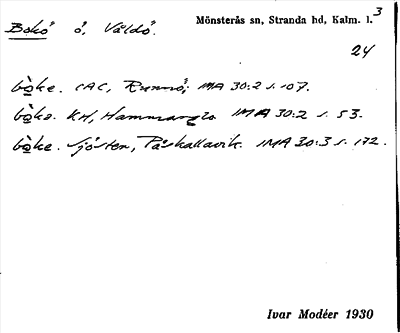 Bokö ö, Våldö. Mönsterås sn, Stranda hd, Kalm. l. 3
24
bo̱ke. CAC, Runnö, MA 30:2 s. 107.
bo̱ke. KH, Hammarglo IMA 30:2 s. 53.
bo̱ke. Sjösten, Påskallavik. IMA 30:3 s. 172.
Ivar Modéer 1930